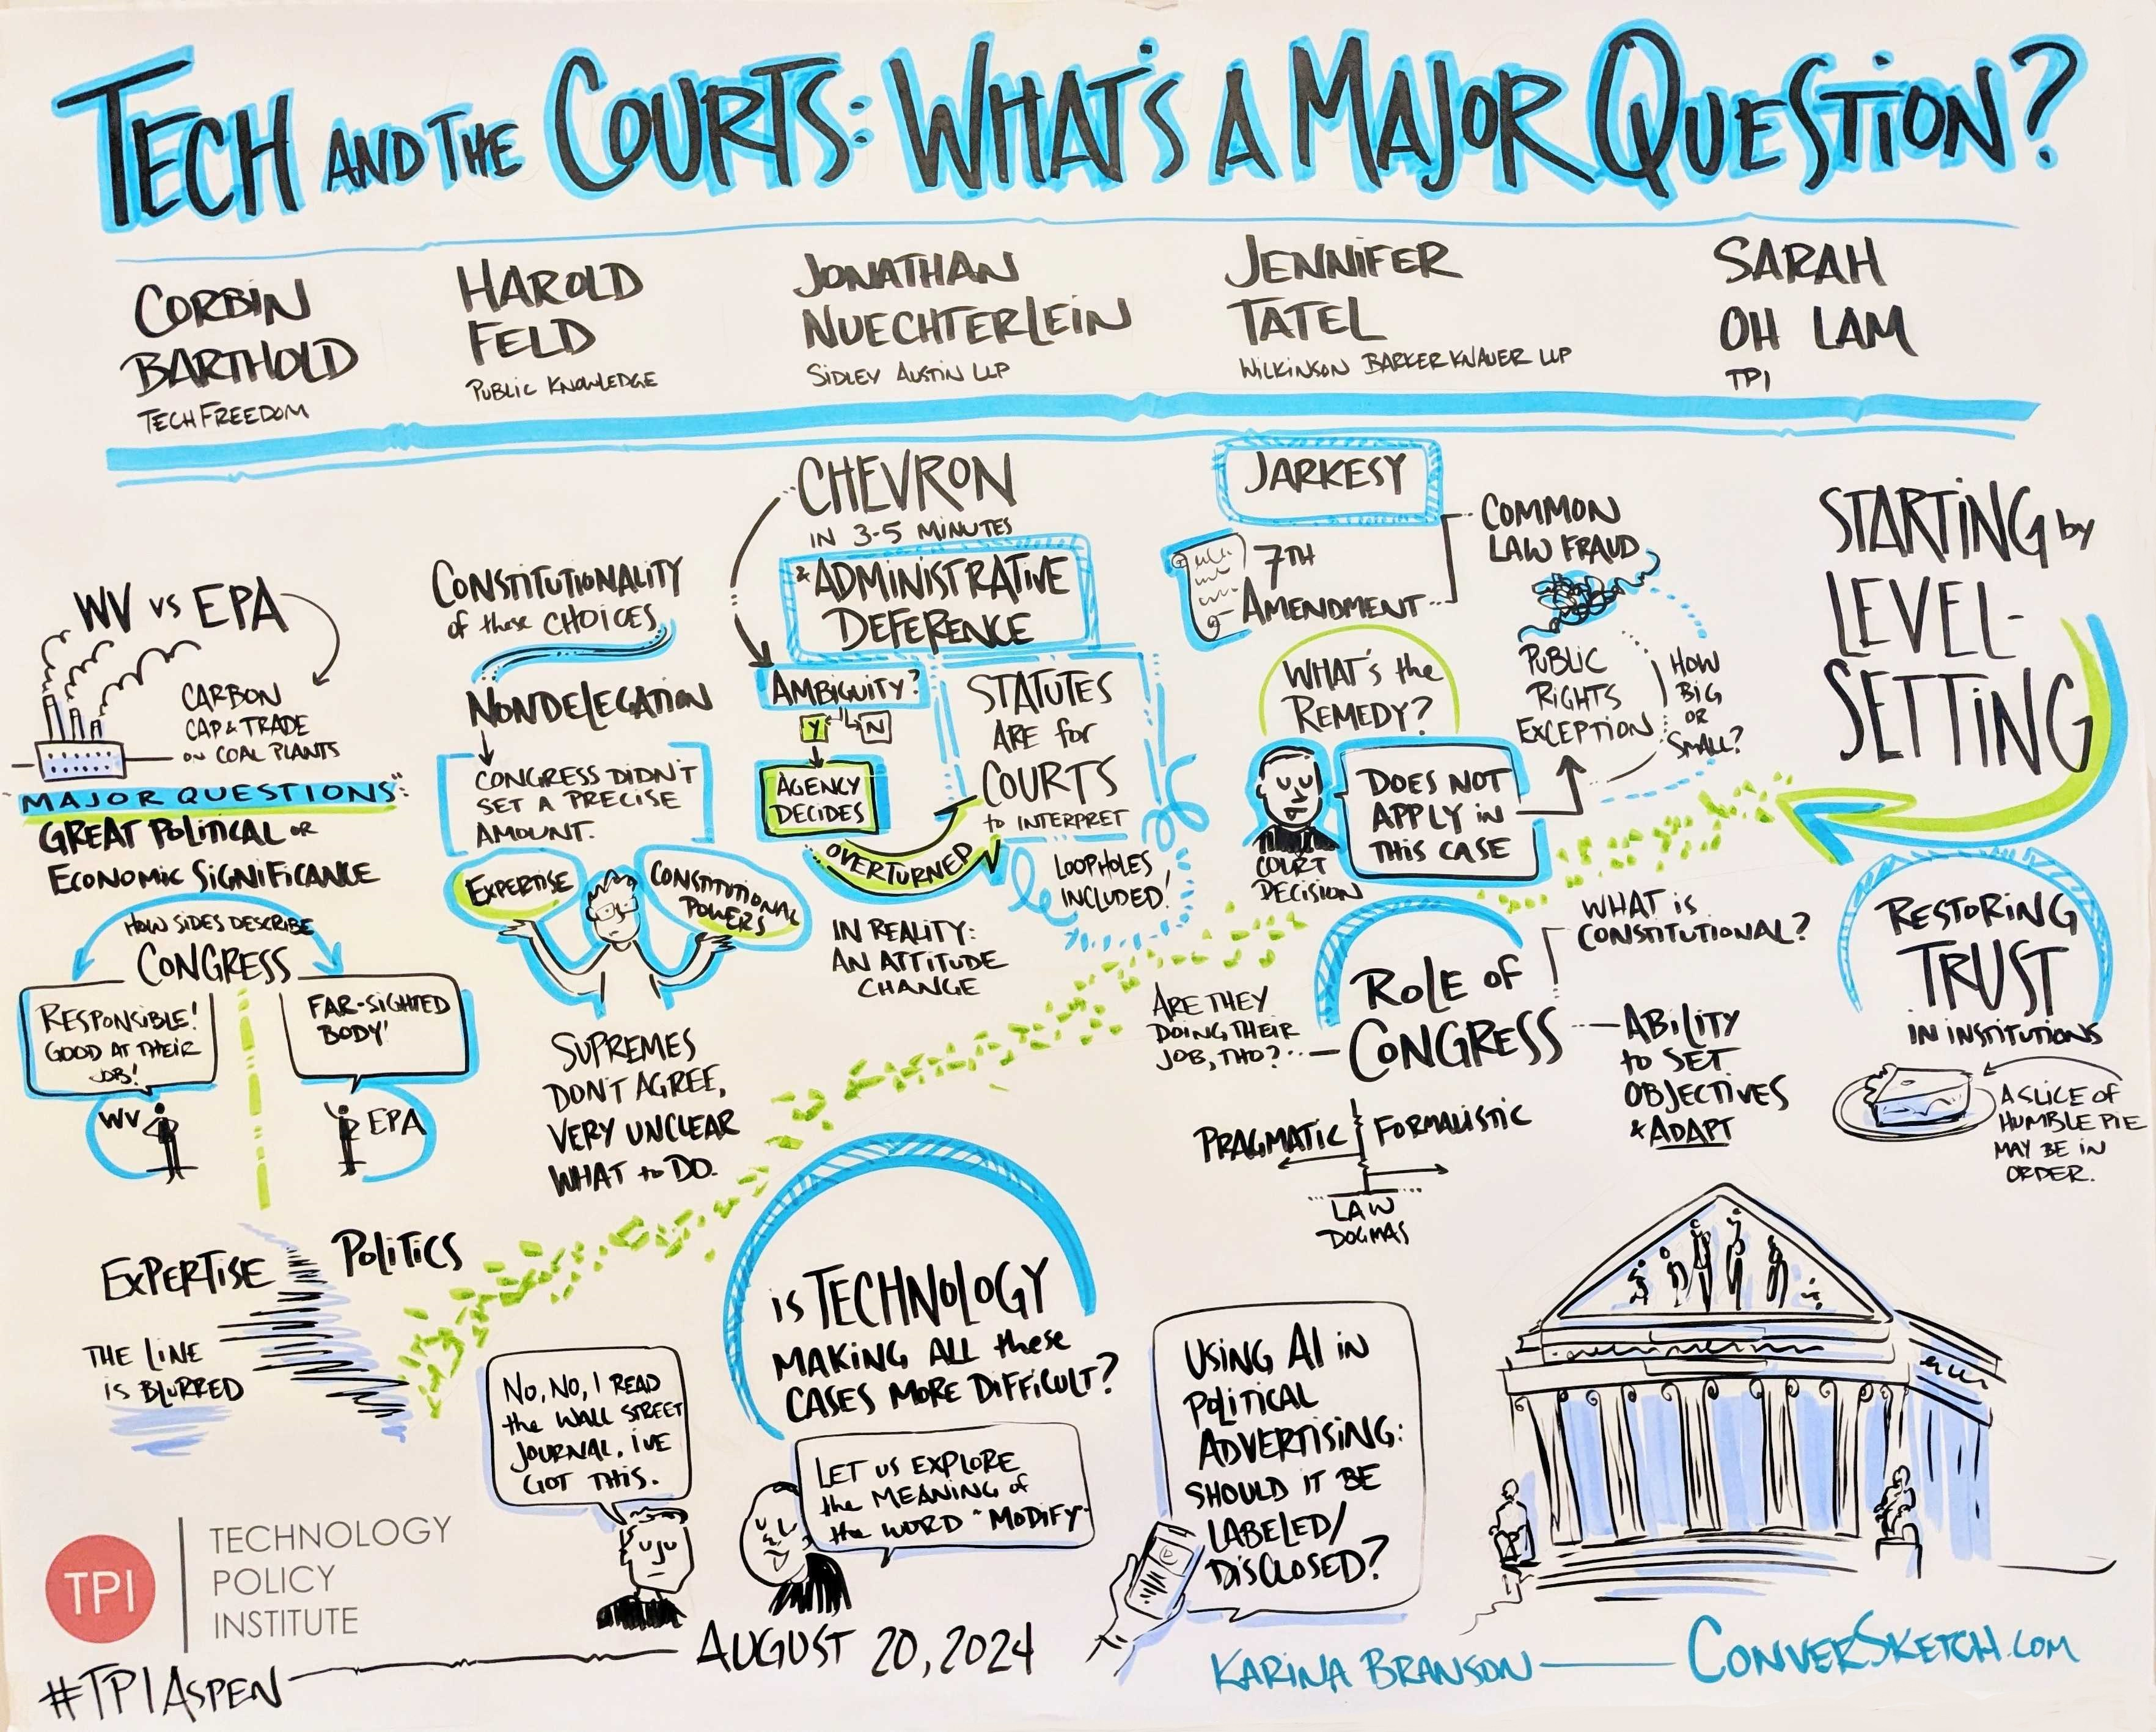 TECH AND THE COURTS: WHAT'S A MAJOR QUESTION?
CORBIN
BARTHOLD
TECHFREEDOM
HAROLD
FELD
PUBLIC KNOWLEDGE
JONATHAN
NUECHTERLEIN
SIDLEY AUSTIN LLP
JENNIFER
TATEL
WILKINSON BARKER KNAUER LLP
SARAH
OH LAM
TPI
STARTING by
LEVEL-
SETTING
JARKESY
7TH
AMENDMENT
COMMON
LAW FRAUD
PUBLIC
RIGHTS
EXCEPTION
HOW
BIG
OR
SMALL?
WHAT'S the
REMEDY?
DOES NOT
APPLY iN
THIS CASE
COURT
DECISION
CHEVRON
IN 3-5 MINUTES
& ADMINISTRATIVE
DEFERENCE
AMBIGUITY?
Y
N
AGENCY
DECIDES
OVERTURNED
STATUTES
ARE for
COURTS
to INTERPRET
LOOPHOLES
INCLUDED!
IN REALITY:
AN ATTITUDE
CHANGE
CONSTITUTIONALITY
of these CHOICES
NONDELEGATION
CONGRESS DIDN'T
SET A PRECISE
AMOUNT.
EXPERTISE
CONSTITUTIONAL
POWERS
SUPREMES
DON'T AGREE,
VERY UNCLEAR
WHAT to DO.
WV vs EPA
CARBON
CAP & TRADE
ON COAL PLANTS
"MAJOR QUESTIONS":
GREAT POLITICAL OR
ECONOMIC SIGNIFICANCE
HOW SIDES DESCRIBE
CONGRESS
RESPONSIBLE!
GOOD AT THEIR
JOB!
WV
FAR-SIGHTED
BODY'
EPA
EXPERTISE
POLITICS
THE LINE
IS BLURRED
WHAT iS
CONSTITUTIONAL?
ROLE OF
CONGRESS
ARE THEY
DOING THEIR
JOB, THO?
ABILITY
to SET
OBJECTIVES
& ADAPT
PRAGMATIC
FORMALISTIC
LAW
DOGMAS
RESTORING
TRUST
IN INSTITUTIONS
A SLICE OF
HUMBLE PIE
MAY BE IN
ORDER.
is TECHNOLOGY
MAKING ALL these
CASES MORE DIFFICULT?
NO, NO, I READ
the WALL STREET
JOURNAL. I'VE
GOT THIS.
LET US EXPLORE
the MEANING of
the WORD "MODIFY"
USING AI iN
POLITICAL
ADVERTISING:
SHOULD IT BE
LABELED/
DISCLOSED?
TPI
TECHNOLOGY
POLICY
INSTITUTE
#TPIASPEN
AUGUST 20, 2024
KARINA BRANSON
CONVERSKETCH.COM